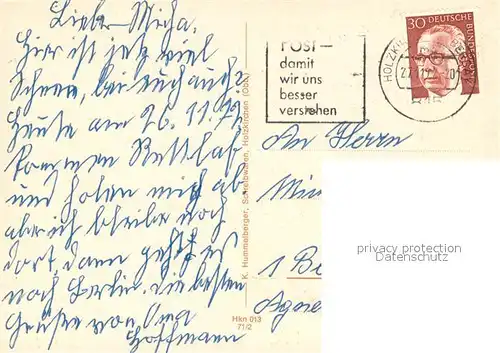 Liebe Micha.
Hier ist jetzt viel
Schnee, bei euch auch?
Heute am 26.11.72
kommen
und holen mich ab
aber ich bleibe noch
dort, dann geht es
nach Berlin. die besten
Grüße von Oma
Hoffmann
POST –
damit
wir uns
besser
verstehen
30 DEUTSCHE BUNDESPOST
An Herrn
1 Be
Agne
K. Hummelberger, Schreibwaren, Holzkirchen (Obb.)
Hkn 013
71/2
privacy protection
Datenschutz